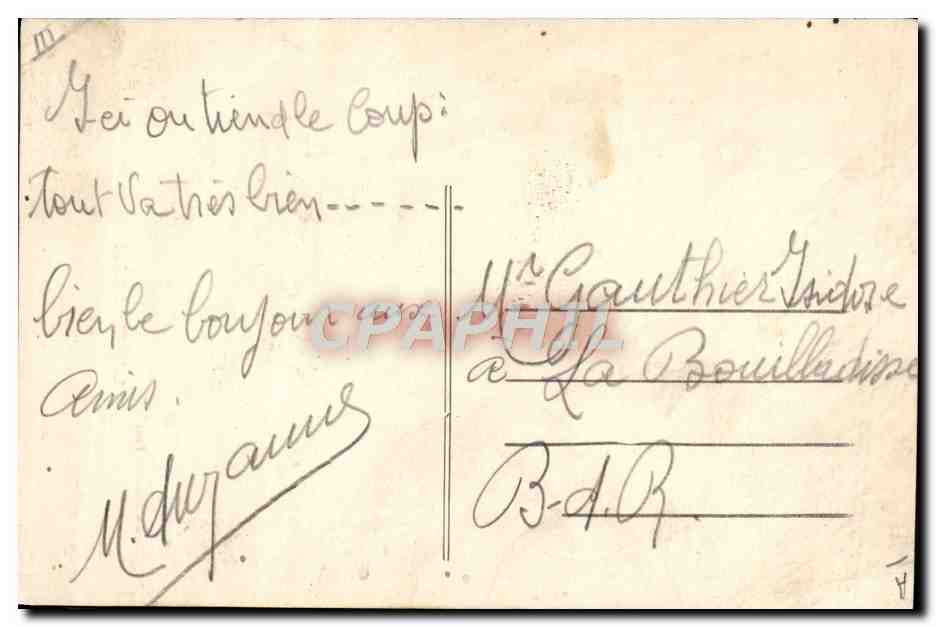 III
Ici on tiend le coup:
tout va très bien------
bien le bonjour aux
amis.
M. Suzanne
Mr Gauthier Isidore
a La Bouilladisse
B-d.R.
CPAPHIL